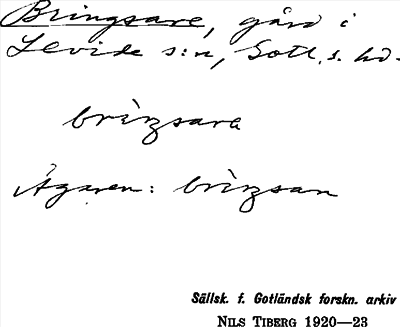 Bringsare, gård i
Levide s:n, Gotl. s. hd.
brìŋsara
Ägaren: brìŋsan
Sällsk. f. Gotländsk forskn. arkiv
NILS TIBERG 1920—23